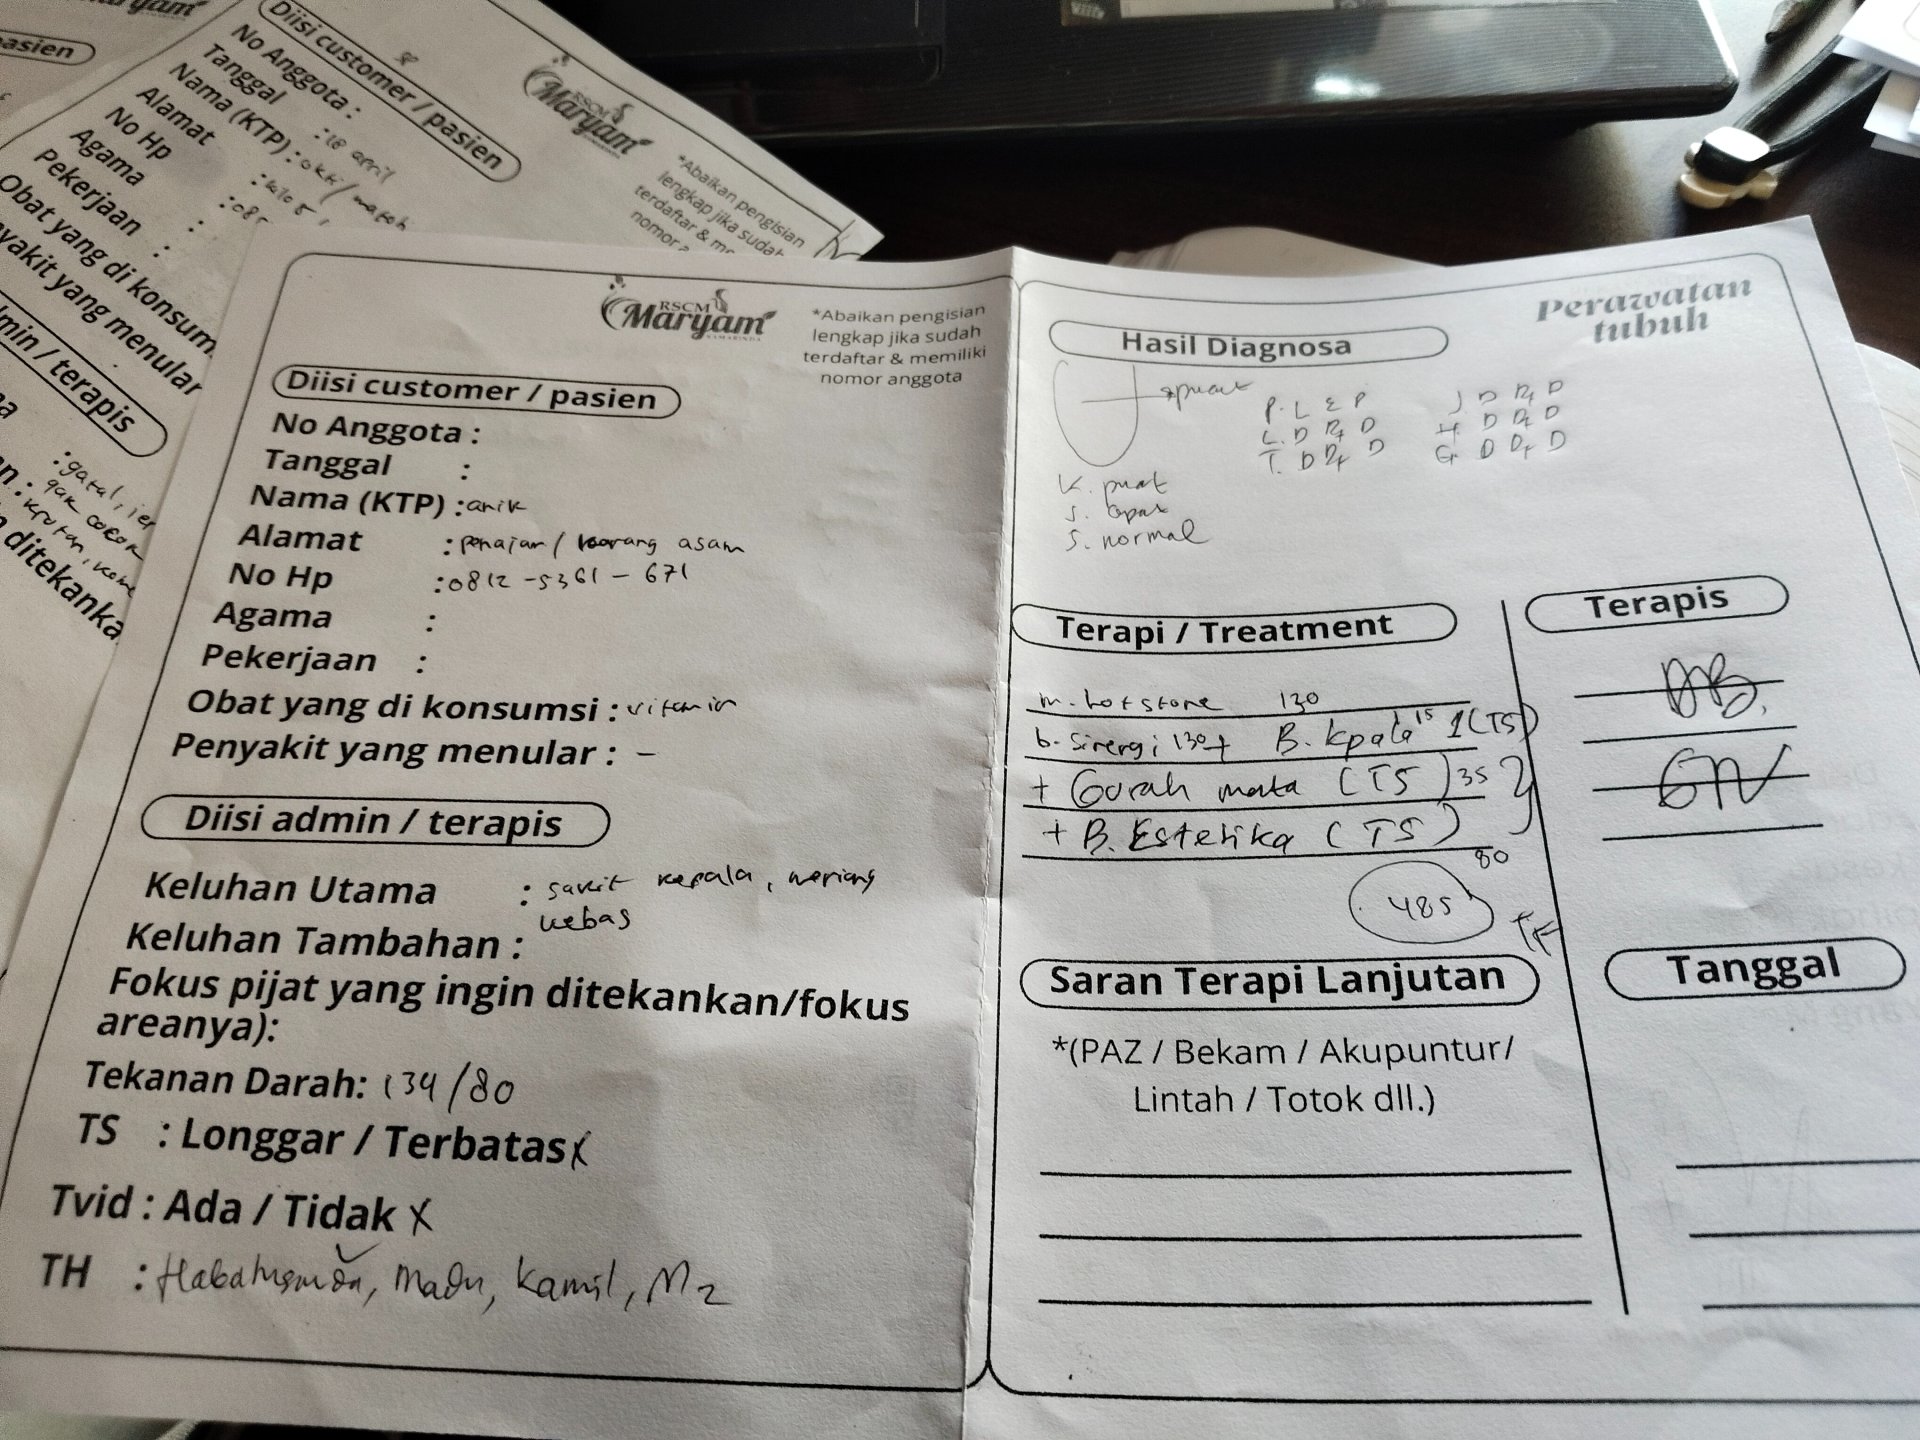 Maryam
pasien
Diisi customer / pasien
No Anggota :
Tanggal : 18 april
Nama (KTP) : okti/
Alamat
No Hp : 08
Agama :
Pekerjaan :
Obat yang di konsum
yakit yang menular
min / terapis
: gatal,
gak cocok
ditekanka
RSCM
Maryam
SAMARINDA
*Abaikan pengisian
lengkap jika sudah
terdaftar &
nomor
RSCM
Maryam
SAMARINDA
*Abaikan pengisian
lengkap jika sudah
terdaftar & memiliki
nomor anggota
Diisi customer / pasien
No Anggota :
Tanggal :
Nama (KTP) : anik
Alamat : penajam / karang asam
No Hp : 0812 - 5361 - 671
Agama :
Pekerjaan :
Obat yang di konsumsi : vitamin
Penyakit yang menular : -
Diisi admin / terapis
Keluhan Utama : sakit kepala, meriang
kebas
Keluhan Tambahan :
Fokus pijat yang ingin ditekankan/fokus
areanya):
Tekanan Darah: 134/80
TS : Longgar / Terbatas X
Tvid : Ada / Tidak X
TH : Madu, Kamil, M2
Perawatan
tubuh
Hasil Diagnosa
pucat
P. L E P
L. D D
T. D D
J D D
H. D D
G D D
K. pucat
S. cepat
S. normal
Terapi / Treatment
m. hot stone 130
b. sinergi 130 + B. kpala 15 1 (TS)
+ Gurah mata (TS) 35
+ B. Estetika (TS)
80
485
Terapis
Saran Terapi Lanjutan
*(PAZ / Bekam / Akupuntur/
Lintah / Totok dll.)
Tanggal